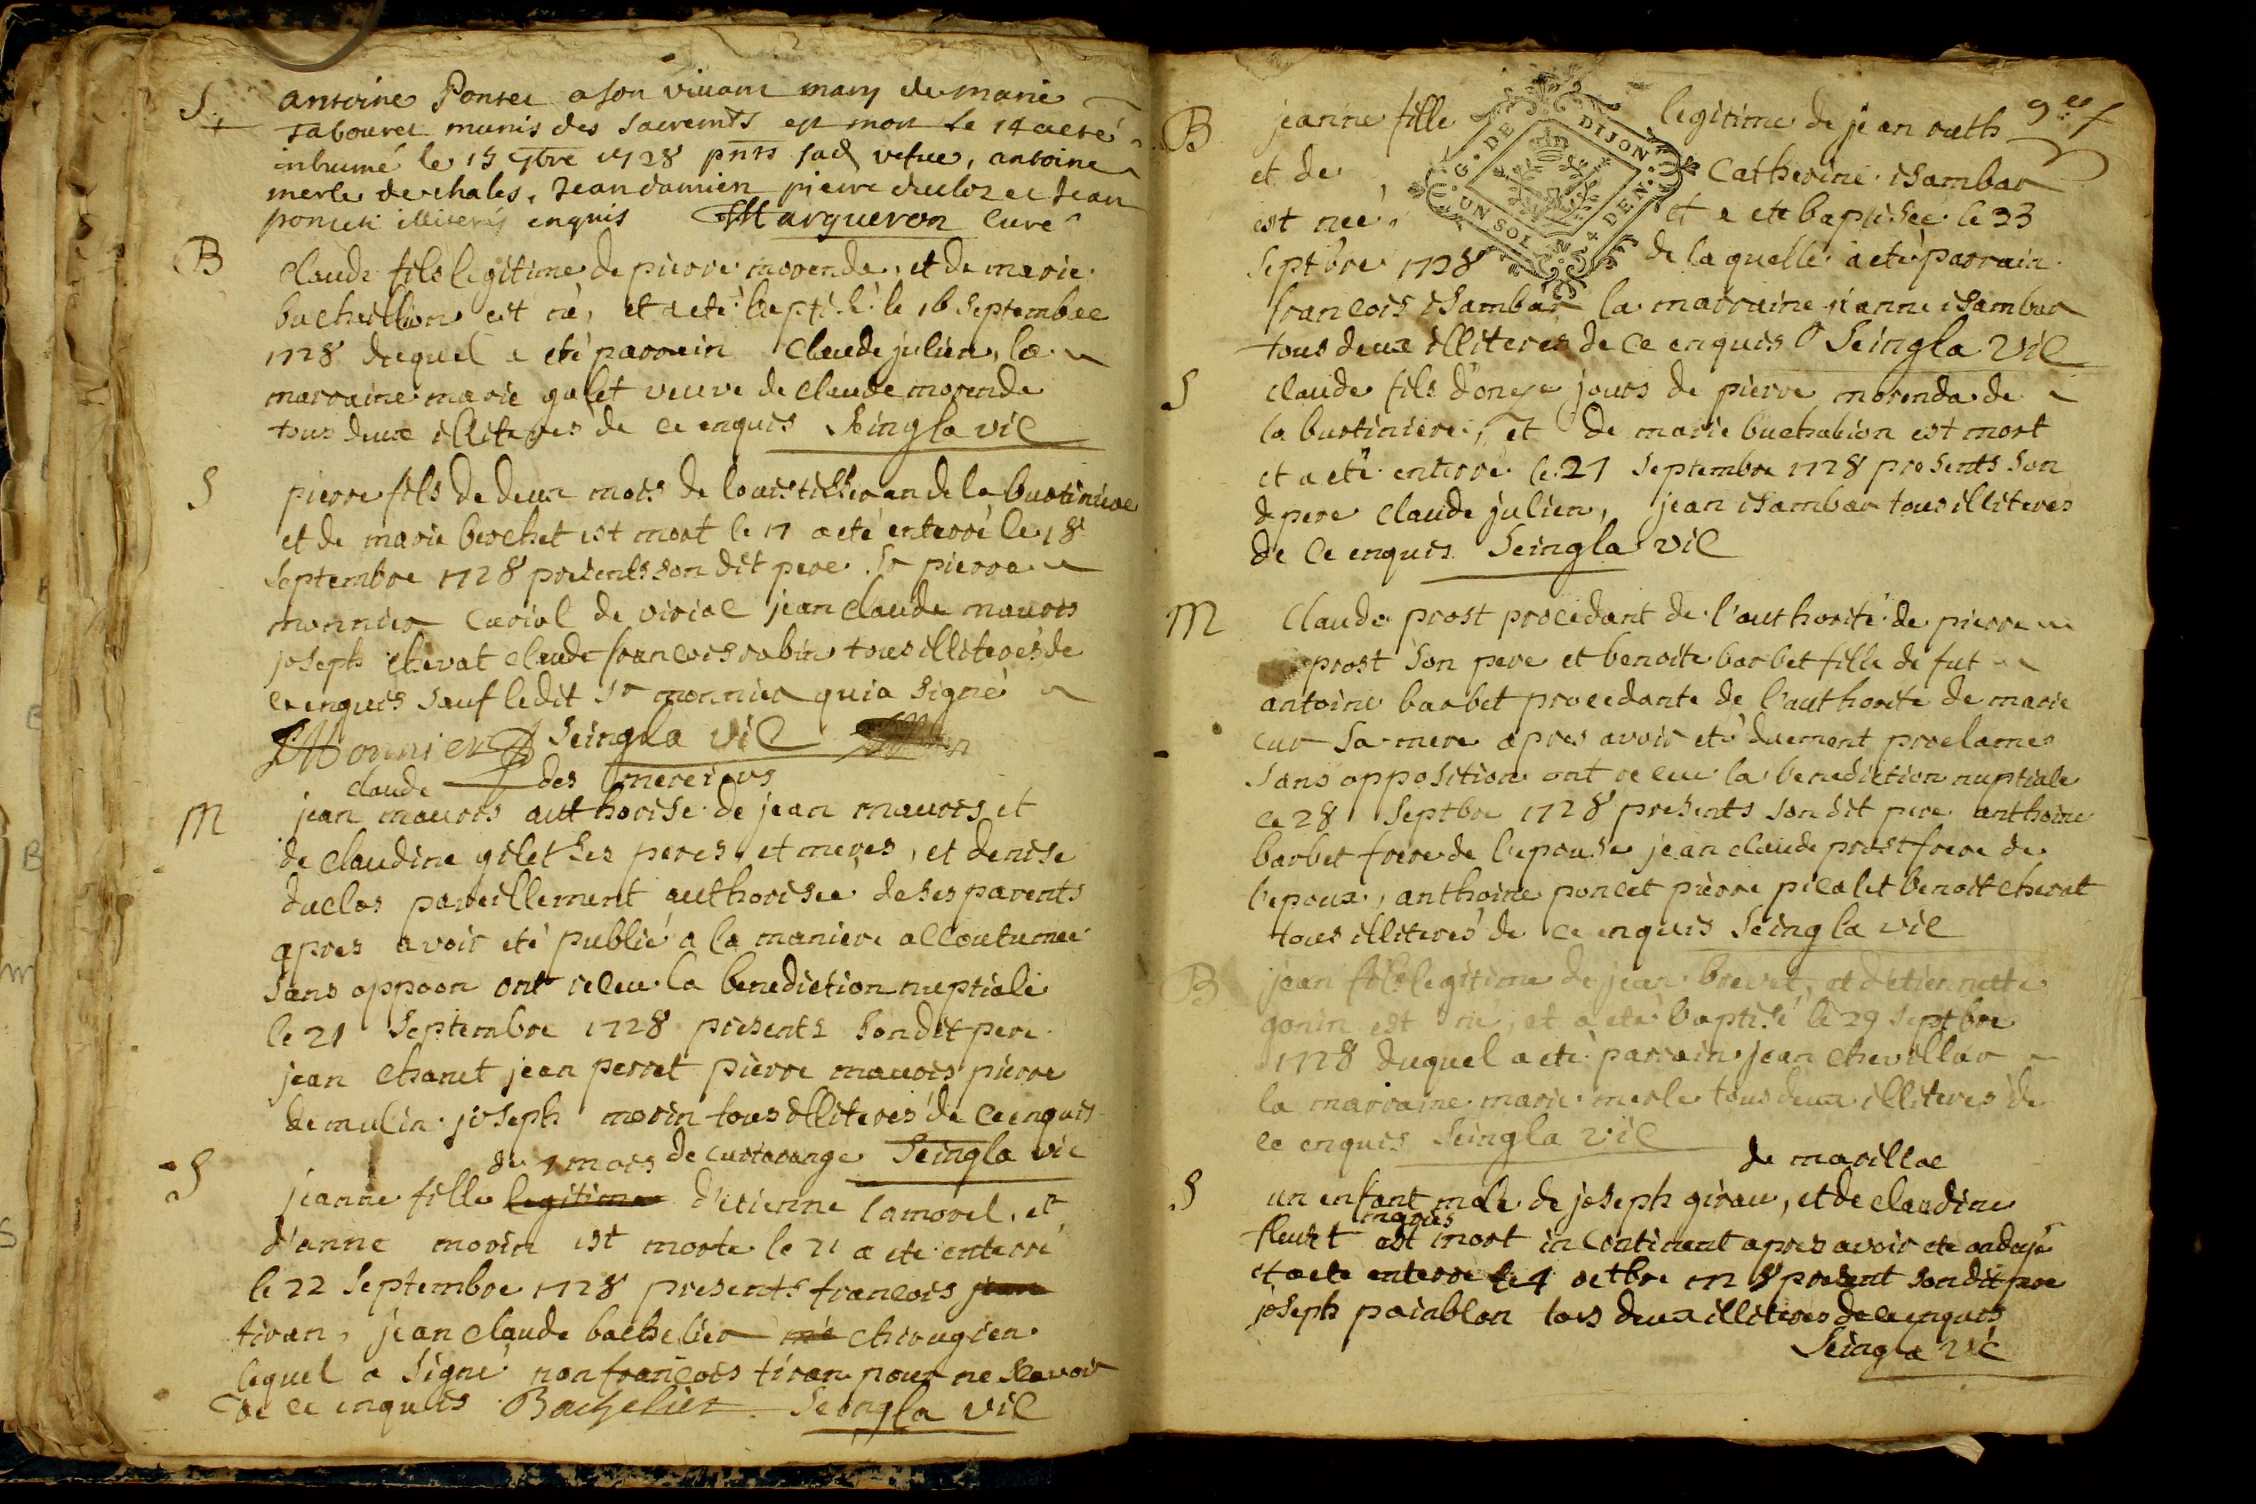 S antoine Poncet a son vivant mary de marie
tabouret munis des sacremts est mort le 14 a eté
inhumé le 15 7bre 1728 pnts sad vefue, antoine
merle de chales, Jean damien pierre duclos et Jean
poncet illiterés enquis Marqueron Curé
B claude fils legitime de pierre morenda, et de marie
buchallion est né, et a eté baptisé le 16 septembre
1728 duquel a eté parrain Claude julien, la
marraine marie galet veuve de claude morenda
tous deux illiteres de ce enquis Seingla vic
S pierre fils de deux mois de louis tisseran de la burtiniere
et de marie berchet est mort le 17 a eté enterré le 18
septembre 1728 presents son dit pere Sr pierre
monnier de viriac jean claude mauris
joseph chevat claude francois robin tous illiterés de
ce enquis sauf ledit Sr monnier qui a signé
Monnier Seingla vic
claude des merciers
M jean mauris authorise de jean mauris et
de claudine gilet ses peres et meres, et denise
duclos pareillement authorisée de ses parents
apres avoir eté publié a la maniere accoutumee
sans oppoon ont receu la benediction nuptiale
le 21 Septembre 1728 presents sondit pere
jean chanet jean perret pierre mauris pierre
demulin joseph morin tous illiterés de ce enquis
de 1 mois de curtarange Seingla vic
S jeanne fille legitime d'etienne lamorel, et
d'anne morin est morte le 21 a eté enterré
le 22 Septembre 1728 presents francois jean
tiran, jean claude bachelier chirugien
lequel a signé non francois tiran pour ne scavoir
de ce enquis Bachelier Seingla vic
B jeanne fille legitime de jean ruth
et de Catherine isambar
est neé, et a eté baptisée le 23
Septbre 1728 de laquelle a eté parrain
francois isambar la marraine jeanne isambar
tous deux illiteres de ce enquis Seingla vic
G. DE DIJON
UN SOL 4 DEN.
S claude fils d'onze jours de pierre morenda de
la burtiniere, et de marie buchalion est mort
et a eté enterré le 27 septembre 1728 presents son
d pere claude julien, jean isambar tous illiteres
de ce enquis Seingla vic
M Claude prost procedant de l'authorité de pierre
prost son pere et benoite barbet fille de fut
antoine barbet procedante de l'authorité de marie
cur sa mere apres avoir eté duement proclames
sans opposition ont receu la benediction nuptiale
ce 28 septbre 1728 presents sondit pere anthoine
barbet frere de l'epouse jean claude prost frere de
l'epoux, anthoine poncet pierre picalet benoit chevat
tous illiterés de ce enquis Seingla vic
B jean fils legitime de jean brevet, et d'etiennette
gonin est né, et a eté baptisé le 29 septbre
1728 duquel a eté parrain jean chevillar
la marraine marie merle tous deux illiteres de
ce enquis Seingla vic
de marillac
S un enfant male de joseph girau, et de claudine
mariés
fleuret est mort incontinent apres avoir eté ondoyé
et a eté enterré le 4 octbre 1728 present son dit pere
joseph painblan tous deux illiteres de ce enquis
Seingla vic